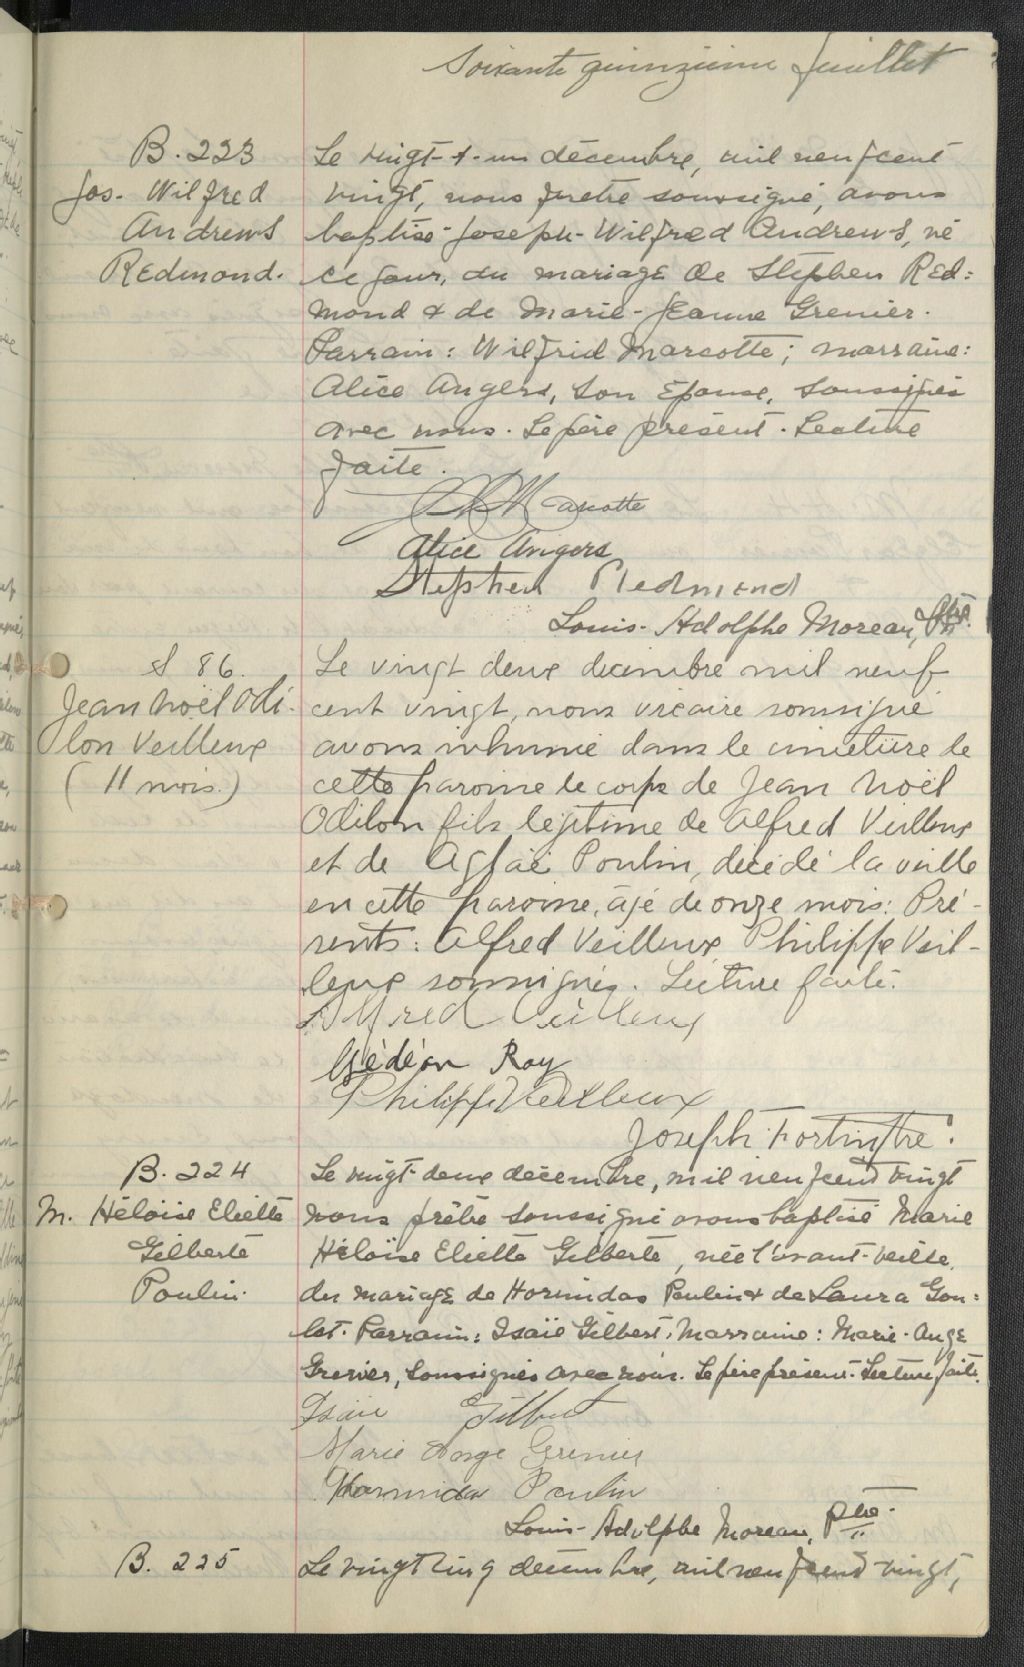 Soixante quinzième feuillet
B. 223
Jos. Wilfred
Andrews
Redmond.
Le vingt-&-un décembre, mil neuf cent
vingt, nous prêtre soussigné, avons
baptisé Joseph-Wilfred Andrews, né
ce jour, du mariage de Stephen Red=
mond & de Marie-Jeanne Grenier.
Parrain: Wilfrid Marcotte; marraine:
Alice Angers, son épouse, soussignés
avec nous. Le père présent. Lecture
faite.
Marcotte
Alice Angers
Stephen Redmond
Louis-Adolphe Moreau, Ptre.
S 86.
Jean Noël Odi-
lon Veilleux
(11 mois.)
Le vingt deux décembre mil neuf
cent vingt, nous vicaire soussigné
avons inhumé dans le cimetière de
cette paroisse le corps de Jean Noël
Odilon fils légitime de Alfred Veilleux
et de Aglaé Poulin, décédé la veille
en cette paroisse, âgé de onze mois. Pré-
sents: Alfred Veilleux Philippe Veil-
leux soussignés. Lecture faite.
Alfred Veilleux
Gédéon Roy
Philippe Veilleux
Joseph Fortin ptre.
B. 224
M. Héloïse Eliette
Gilberte
Poulin.
Le vingt-deux décembre, mil neuf cent vingt
nous prêtre soussigné avons baptisé Marie
Héloïse Eliette Gilberte, née l'avant-veille,
du mariage de Hormidas Poulin & de Laura Gou=
let. Parrain: Isaïe Gilbert. Marraine: Marie-Ange
Grenier, soussignés avec nous. Le père présent. Lecture faite.
Isaie Gilbert
Marie Ange Grenier
Hormidas Poulin
Louis-Adolphe Moreau, Ptre.
B. 225
Le vingt cinq décembre, mil neuf cent vingt,